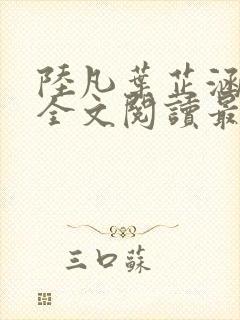 陸凡葉芷涵
全文閱讀最
三口蘇